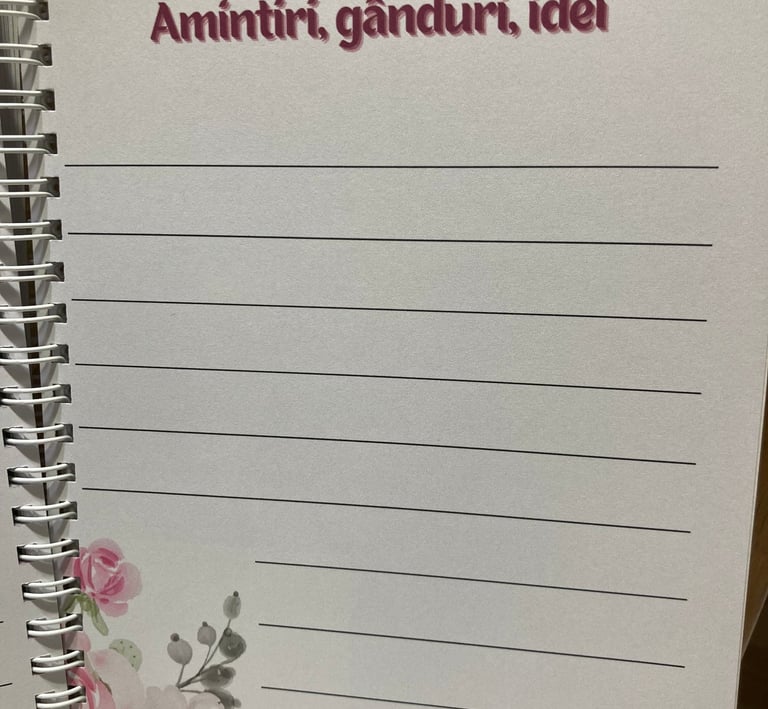 Amintiri, gânduri, idei